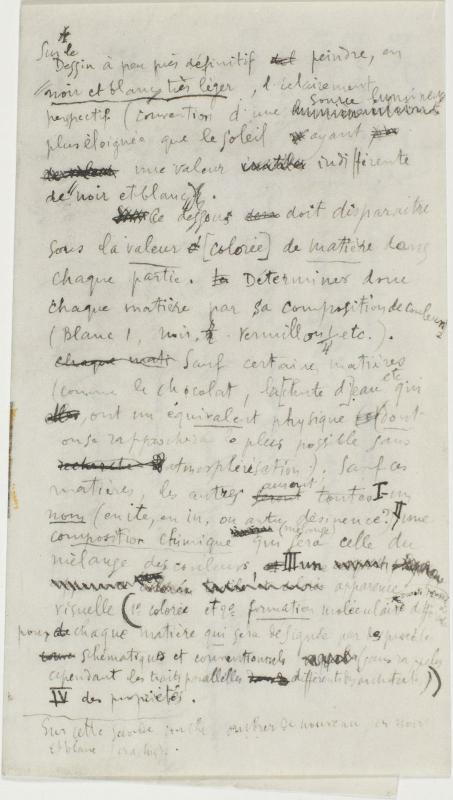 Sur le
Dessin à peu près définitif peindre, en
"noir et blanc très léger, l'éclairement
perspectif (convention d'une source lumineuse
plus éloignée que le soleil ayant
une valeur indifférente
de "noir et blanc").
Ce dessous doit disparaître
sous la valeur [colorée] de matière dans
chaque partie. Déterminer donc
chaque matière par sa composition de couleurs
(Blanc 1, noir, 1/2 Vermillon 1/4 etc.).
chaque mati Sauf certaines matières
(comme le chocolat, eau etc qui
, ont un équivalent physique dont
on se rapprochera le plus possible sans
atmosphérisation). Sauf ces
matières, les autres auront toutes I- un
nom (en ite, en in, ou autre désinence?) II une
composition chimique qui sera celle du
mélange des couleurs III un
apparence
visuelle (1º colorée et 2º formation moléculaire
pour de chaque matière qui sera désignée par procédés
schématiques et conventionnels (sans
cependant les traits parallèles différents des architectes))
IV des propriétés.
Sur cette couche de nouveau en noir
et blanc